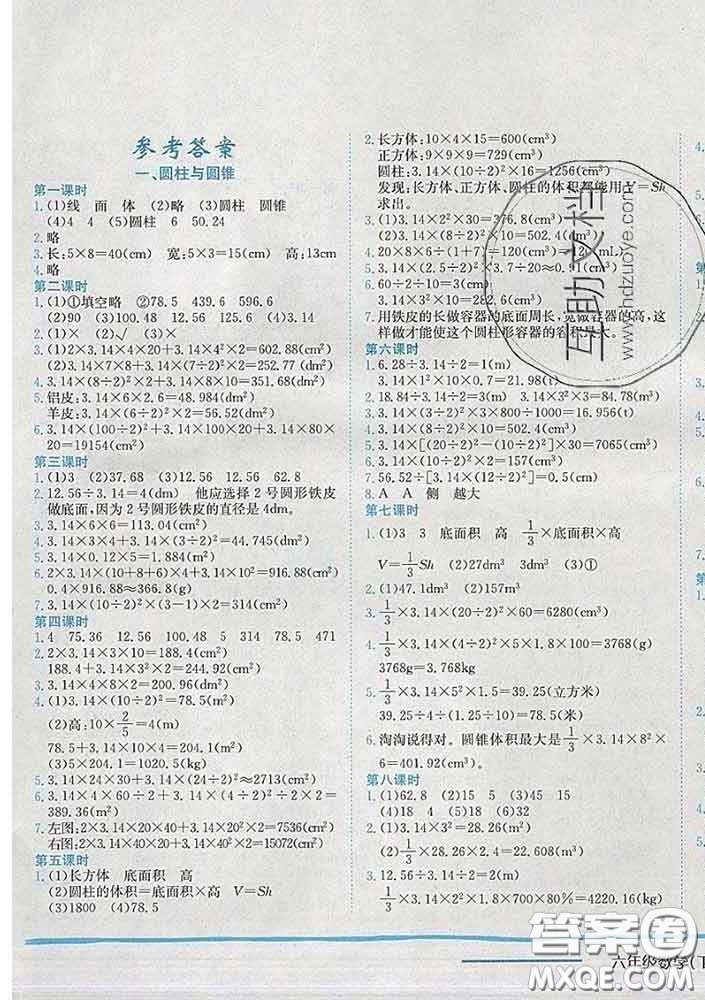 参考答案
一、圆柱与圆锥
第一课时
1.(1)线 面 体 (2)略 (3)圆柱 圆锥
(4)4 4 (5)圆柱 6 50.24
2.略
3.长:5×8=40(cm) 宽:5×3=15(cm) 高:13cm
4.略
第二课时
1.(1)①填空略 ②78.5 439.6 596.6
(2)90 (3)100.48 125.6 (4)3.14
2.(1)× (2)√ (3)×
3.(1)2×3.14×4×20+3.14×4²×2=602.88(cm²)
(2)3.14×7×8+3.14×(7÷2)²×2=252.77 (dm²)
4.3.14×(8÷2)²×2+3.14×8×10=351.68(cm²)
5.铝皮:3.14×6×2.6=48.984(dm²)
羊皮:3.14×(6÷2)²×2=56.52(dm²)
6.3.14×(100÷2)²+3.14×(100÷2)²+3.14×80×
20=19154(cm²)
第三课时
1.(1)3 (2)37.68 (3)12.56 12.56 62.8
2.12.56÷3.14=4(dm) 他应选择2号圆形铁皮
做底面,因为2号圆形铁皮的直径是4dm。
3.3.14×6×6=113.04(cm²)
4.3.14×3×4+3.14×(3÷2)²=44.745(cm²)
5.3.14×0.12×5=1.884(m²)
6.2×3.14×(10+8+6)×4+3.14×10²=916.88(cm²)
0.4×916.88≈366.8(g)
7.3.14×(10÷2)²×(3-1)×2=314(cm²)
第四课时
1.4 75.36 12.56 100.48 5 314 78.5 471
2.2×3.14×3×10=188.4(cm²)
188.4+3.14×3²×2=244.92(cm²)
3.3.14×4×8×2=200.96(dm²)
4.(1)3.14×(10÷2)²=78.5(m²)
(2)高:10×2/5=4(m)
78.5+3.14×10×4=204.1(m²)
(3)5×204.1=1020.5(kg)
5.3.14×24×30+3.14×(24÷2)²≈2713(cm²)
6.3.14×4×60÷2+3.14×(4÷2)²÷2×2=
389.36(m²)
7.左图:2×3.14×20×40+3.14×20²×2=7536(cm²)
右图:2×3.14×40×20+3.14×40²×2=15072(cm²)
第五课时
1.(1)长方体 底面积 高
(2)圆柱的体积=底面积×高 V=Sh
(3)1800 (4)78.5
2.长方体:10×4×15=600(cm³)
正方体:9×9×9=729(cm³)
圆柱:3.14×(10÷2)²×16=1256(cm³)
发现:长方体、正方体、圆柱的体积都能用V=Sh
求出。
3.(1)3.14×2²×30=376.8(cm³)
(2)3.14×(8÷2)²×10=502.4(cm³)
4.20×8÷(1+7)=120(cm³)=120(mL)
5.3.14×(2÷2)²×3.7÷20≈0.91(cm³)
6.60÷2÷10=3(cm)
3.14×3²×10=282.6(cm³)
7.用铁皮的长做容器的底面周长,宽做容器的高,这
样做才能使这个圆柱形容器的容积最大。
第六课时
1.6.28÷3.14÷2=1(m)
3.14×1²×10×2=62.8(m³)
2.18.84÷3.14÷2=3(m) 3.14×3²×3=84.78(m³)
3.3.14×(3÷2)²×3×800÷1000=16.956(t)
4.3.14×(8÷2)²×10=502.4(cm³)
5.3.14×[(20÷2)²-(10÷2)²]×30=7065(cm³)
6.3.14×(10÷2)²×2=157(cm³)
7.56.52÷[3.14×(12÷2)²]=0.5(cm)
8.A A 侧 越大
第七课时
1.(1)3 3 底面积 高 1/3×底面积×高
V=1/3Sh (2)27dm³ 3dm³ (3)①
2.(1)47.1dm³ (2)24dm³
3.1/3×3.14×(20÷2)²×60=6280(cm³)
4.1/3×3.14×(4÷2)²×5×1.8×100=3768(g)
3768g=3.768kg
5.1/3×3.14×(10÷2)²×1.5=39.25(立方米)
39.25÷4÷(1.25÷1)=7.85(米)
6.淘淘说得对。圆锥体积最大是1/3×3.14×8²×
6=401.92(cm³)。
第八课时
1.(1)62.8 (2)15 5 (3)45 15
(4)18 4 (5)18 (6)32
2.(1)3.14×(2÷2)²×4=12.56(dm³)
(2)1/3×3.14×(4÷2)²×6=25.12(cm³)
3.12.56÷3.14÷2=2(m)
1/3×3.14×2²×1.8×700×80%=4220.16(kg)
六年级数学(下
互助文档
www.hdzuoye.com
答案圈
MXQE.COM